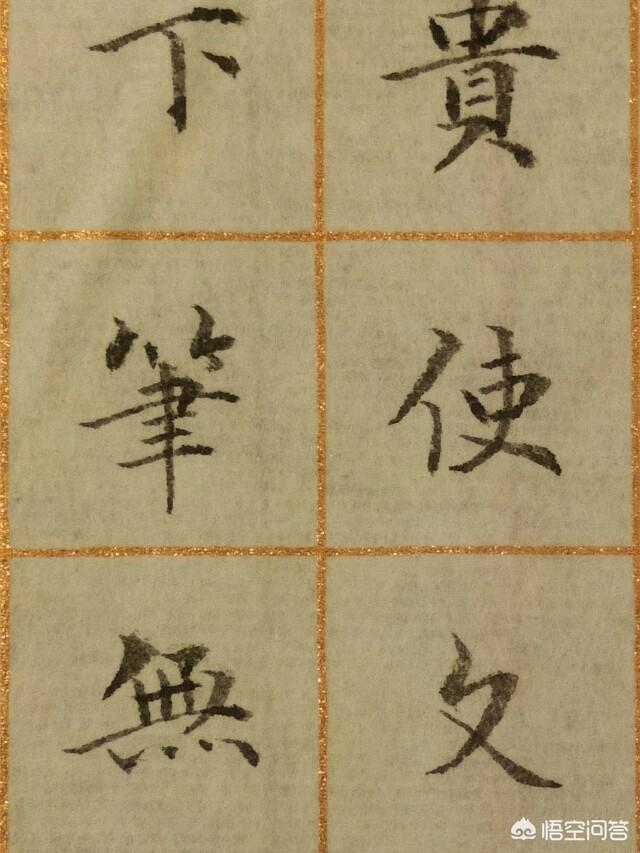 貴使文
下筆無
悟空问答